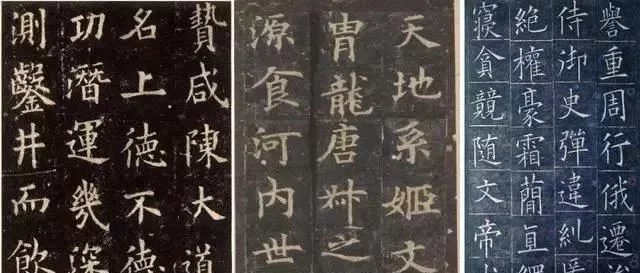 贊咸陳大道
名上德不德
功潛運幾深
測鑿井而飲
天地系姬文
冑龍唐叔之
源食河内世
譽重周行俄遷
侍御史彈違糺
絕權豪霜蕳直繩
寑貪競随文帝